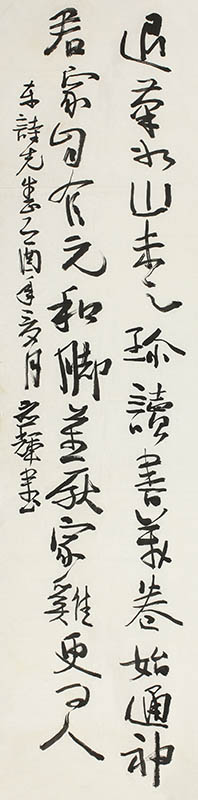 退筆如山未足珍讀書萬卷始通神
君家自有元和脚莫厭家雞更问人
东詩 乙酉年夏月 輝书